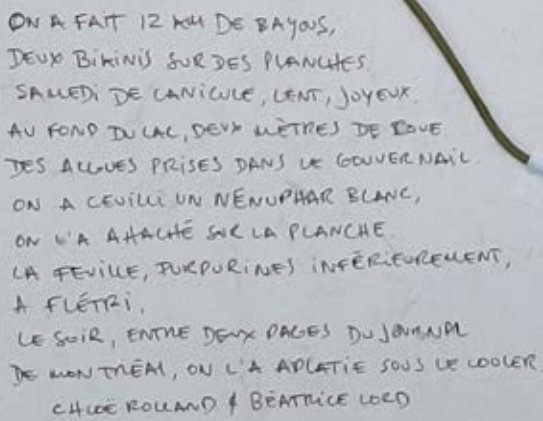 ON A FAIT 12 KM DE BAYOUS,
DEUX BIKINIS SUR DES PLANCHES.
SAMEDI DE CANICULE, LENT, JOYEUX.
AU FOND DU LAC, DEUX MÈTRES DE BOUE
DES ALGUES PRISES DANS LE GOUVERNAIL.
ON A CEUILLI UN NÉNUPHAR BLANC,
ON L'A ATTACHÉ SUR LA PLANCHE.
LA FEUILLE, PURPURINES INFÉRIEUREMENT,
A FLÉTRI,
LE SOIR, ENTRE DEUX PAGES DU JOURNAL
DE MONTRÉAL, ON L'A APLATIE SOUS LE COOLER
CHLOÉ ROLLAND & BÉATRICE LORD